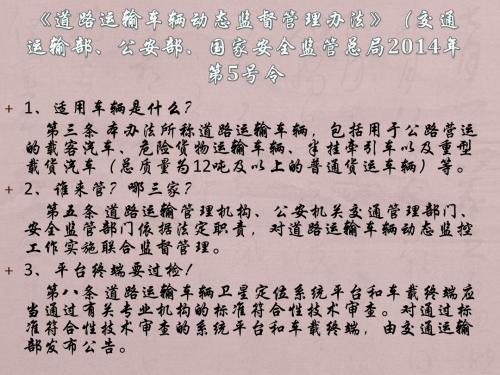 《道路运输车辆动态监督管理办法》（交通
运输部、公安部、国家安全监管总局2014年
第5号令
+ 1、适用车辆是什么？
第三条 本办法所称道路运输车辆，包括用于公路营运
的载客汽车、危险货物运输车辆、半挂牵引车以及重型
载货汽车（总质量为12吨及以上的普通货运车辆）等。
+ 2、谁来管？哪三家？
第五条 道路运输管理机构、公安机关交通管理部门、
安全监管部门依据法定职责，对道路运输车辆动态监控
工作实施联合监督管理。
+ 3、平台终端要过检！
第八条 道路运输车辆卫星定位系统平台和车载终端应
当通过有关专业机构的标准符合性技术审查。对通过标
准符合性技术审查的系统平台和车载终端，由交通运输
部发布公告。